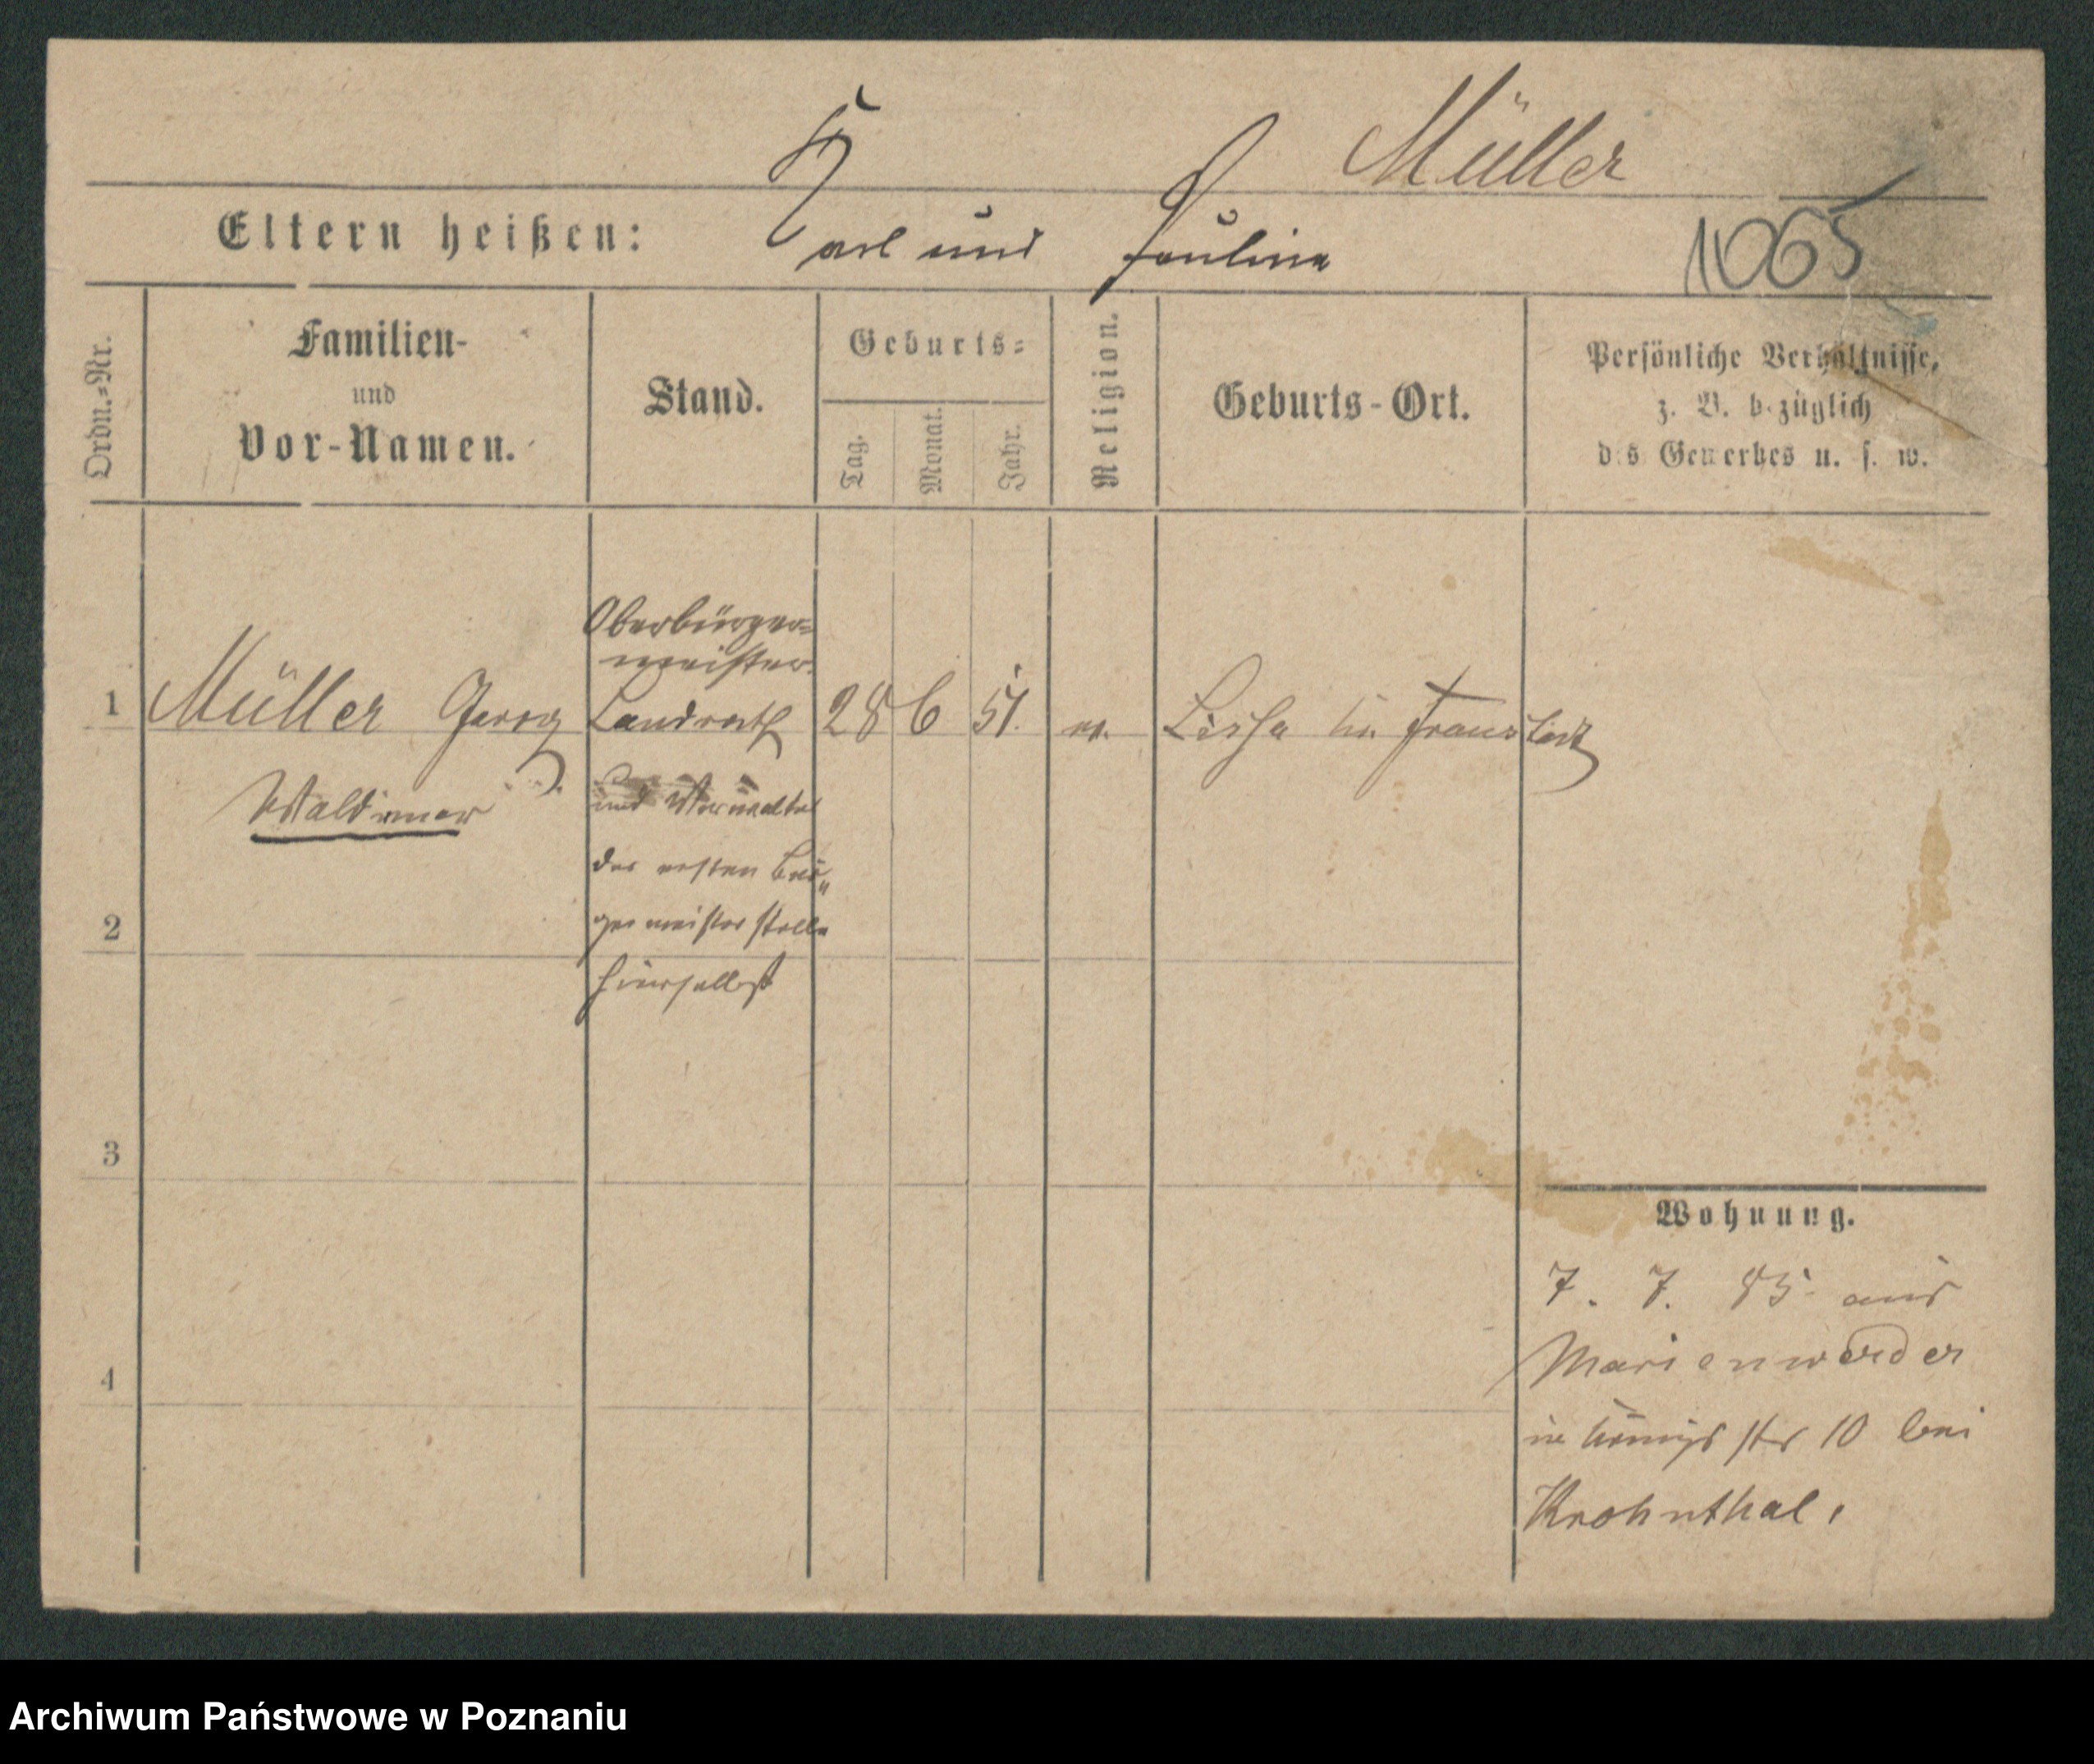 Müller
Eltern heißen: Karl und Pauline
1065
Ordn.-Nr.
Familien-
und
Vor-Namen.
Stand.
Geburts-
Tag.
Monat.
Jahr.
Religion.
Geburts-Ort.
Persönliche Verhältnisse,
z. B. bezüglich
des Gewerbes u. s. w.
Oberbürger-
meister
1 Müller Georg Landrath 28 6 51. Lissa Kr. Fraustadt
Waldimar
und Verwalter
der ersten Bür-
germeisterstelle
hierselbst
2
3
4
Wohnung.
7. 7. 85 aus
Marienwerder
in Königsstr 10 bei
Krohnthal.
Archiwum Państwowe w Poznaniu